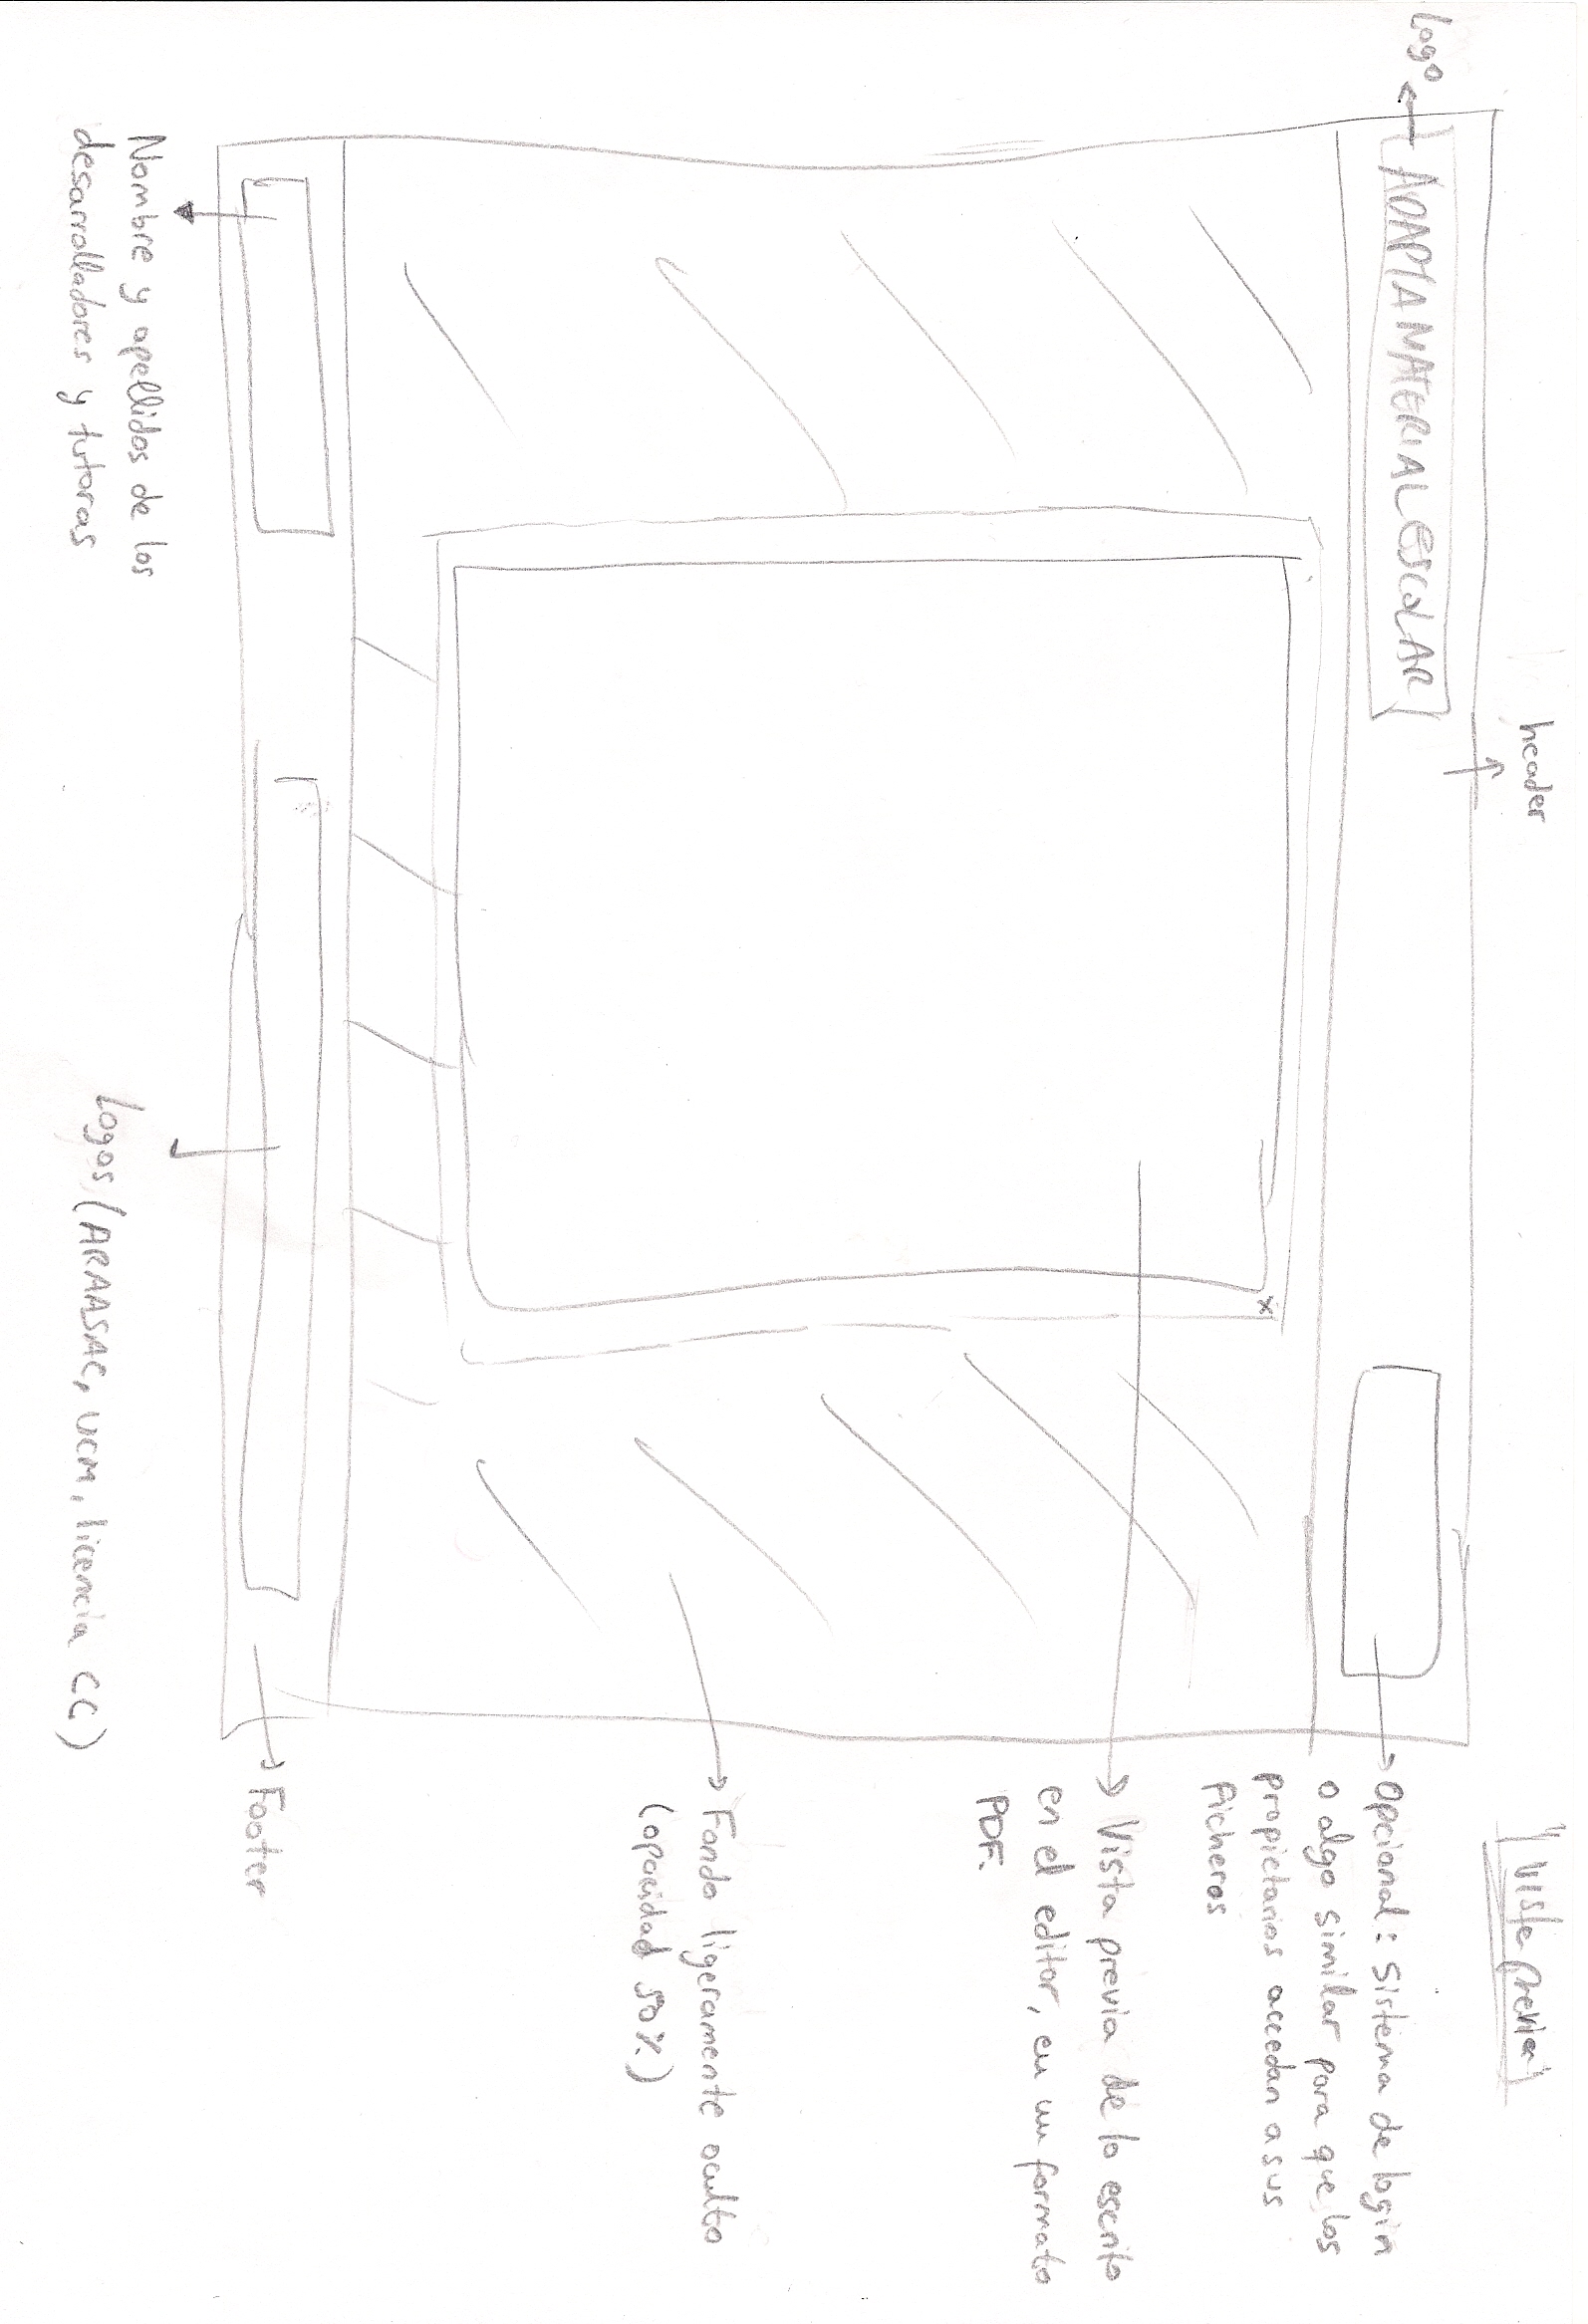 header
"Vista previa"
Logo
ADAPTAMATERIALESCOLAR
Opcional: Sistema de login
o algo similar para que los
propietarios accedan a sus
ficheros
x
Vista previa de lo escrito
en el editor, en un formato
PDF.
Fondo ligeramente oculto
(opacidad 50%)
Footer
Nombre y apellidos de los
desarrolladores y tutoras
Logos (ARAASAC, UCM, licencia CC)